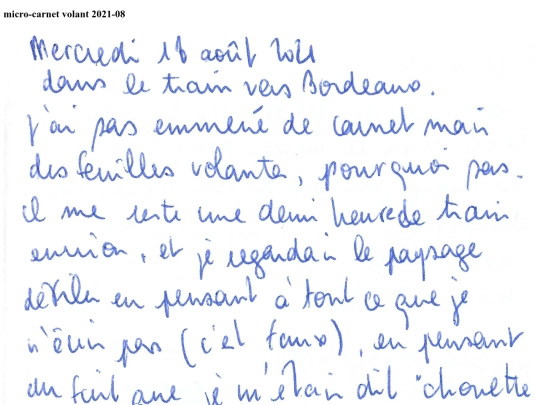 micro-carnet volant 2021-08
Mercredi 18 août 2021
dans le train vers Bordeaux.
j'ai pas emmené de carnet mais
des feuilles volantes, pourquoi pas.
il me reste une demi heure de train
environ, et je regardais le paysage
défiler en pensant à tout ce que je
n'écris pas (c'est faux), en pensant
au fait que je m'étais dit "chouette